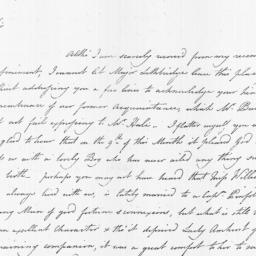 Altho' I am scarcely recoverd from my recent
confinement, I cannot let Major Lethbridge leave this place
without addressing you a few lines to acknowledge your kind
remembrance of our former Acquaintance, which Mr. Bur
did not fail expressing to Mr. Hale. I flatter myself you will
glad to hear that on the 9th of this Month it pleased God
us with a lovely Boy who has never ail'd any thing since
birth. perhaps you may not have heard that Miss Will
always lived with us, is lately married to a Capt.
young Man of good fortune & connexions, but what is still
an excellent Character & tho' it deprived Lady Amherst of
charming companion, it was a great comfort to her to see